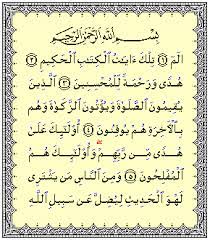 بِسْمِ اللَّهِ الرَّحْمَٰنِ الرَّحِيمِ
الٓمٓ ١ تِلْكَ ءَايَٰتُ ٱلْكِتَٰبِ ٱلْحَكِيمِ ٢
هُدًى وَرَحْمَةً لِّلْمُحْسِنِينَ ٣ ٱلَّذِينَ
يُقِيمُونَ ٱلصَّلَوٰةَ وَيُؤْتُونَ ٱلزَّكَوٰةَ وَهُم
بِٱلْءَاخِرَةِ هُمْ يُوقِنُونَ ٤ أُو۟لَٰٓئِكَ عَلَىٰ
هُدًى مِّن رَّبِّهِمْ وَأُو۟لَٰٓئِكَ هُمُ
ٱلْمُفْلِحُونَ ٥ وَمِنَ ٱلنَّاسِ مَن يَشْتَرِى
لَهْوَ ٱلْحَدِيثِ لِيُضِلَّ عَن سَبِيلِ ٱللَّهِ